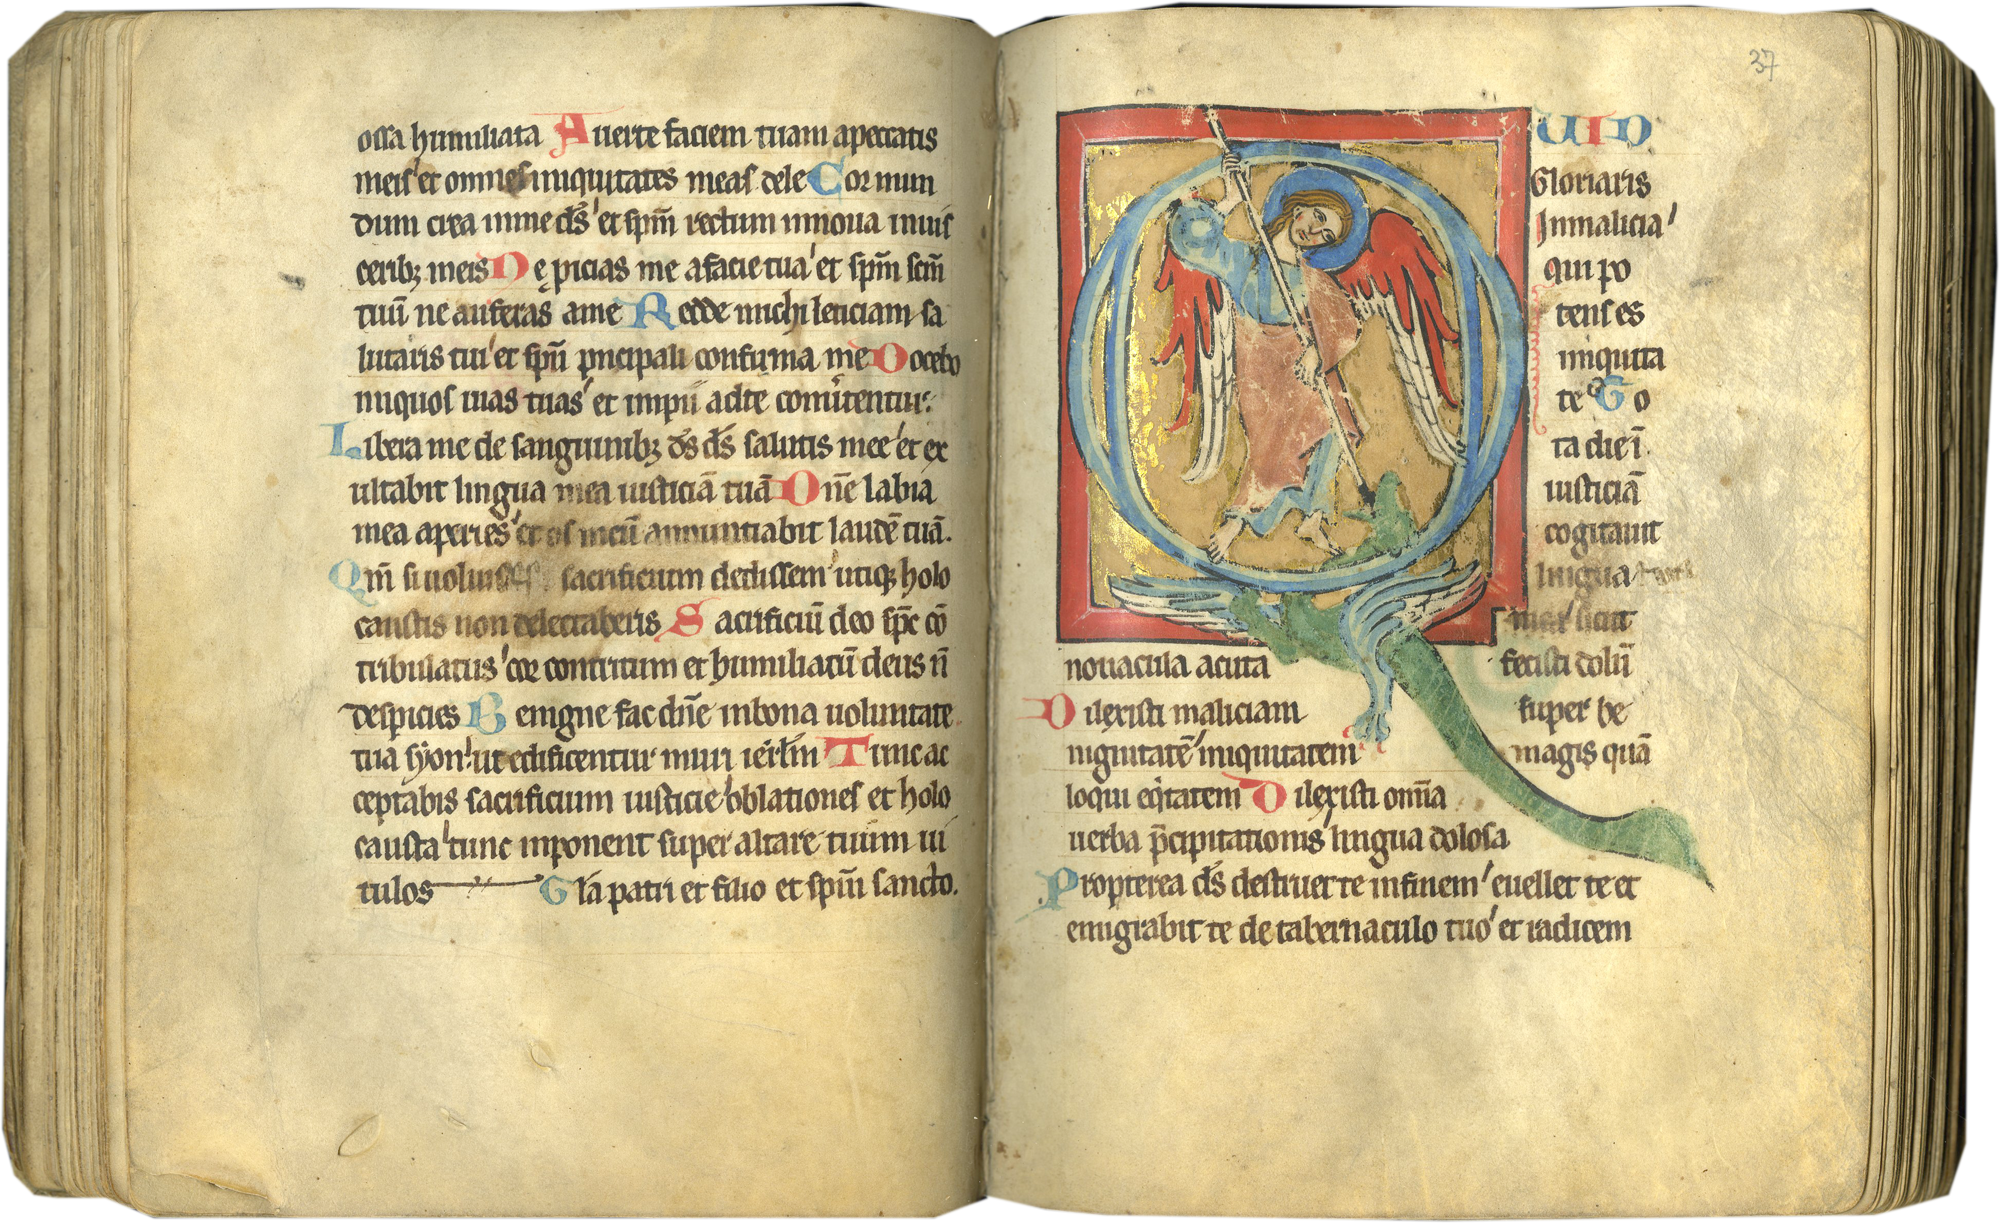 ossa humiliata Auerte faciem tuam apeccatis
meis' et omnes iniquitates meas dele Cor mun
dum crea inme ds̄' et spm̄ rectum innoua inuis
ceribꝫ meis Ne ꝓicias me afacie tua' et spm̄ scm̄
tuū ne auferas ame Redde michi leticiam sa
lutaris tui' et spū pncipali confirma me Docebo
iniquos uias tuas' et impii adte conūtentur.
Libera me de sanguinibꝫ ds̄ ds̄ salutis mee' et ex
ultabit lingua mea iusticiā tuā Dnē labia
mea aperies' et os meū annuntiabit laudē tuā.
Qm̄ si uoluisses sacrificium dedissem' utiqꝫ holo
caustis non delectaberis Sacrificiū deo spc̄ cō
tribulatus' cor contritum et humiliatū deus n̄
despicies Benigne fac dn̄e inbona uoluntate
tua syon' ut edificentur muri ierlm̄ Tunc ac
ceptabis sacrificium iusticie' oblationes et holo
causta' tunc inponent super altare tuum ui
tulos Gl̄a patri et filio et spm̄ sancto.
37
QUID
Gloriaris
Inmalicia'
qui po
tens es
iniquita
te To
ta die ī
iusticiā
cogitauit
lingua tua
sicut
nouacula acuta fecisti dolū
Dilexisti maliciam super be
nignitatē' iniquitatem magis quā
loqui eqitatem Dilexisti omīa
uerba p̄cipitationis' lingua dolosa
Propterea ds̄ destruet te infinem' euellet te et
emigrabit te de tabernaculo tuo' et radicem